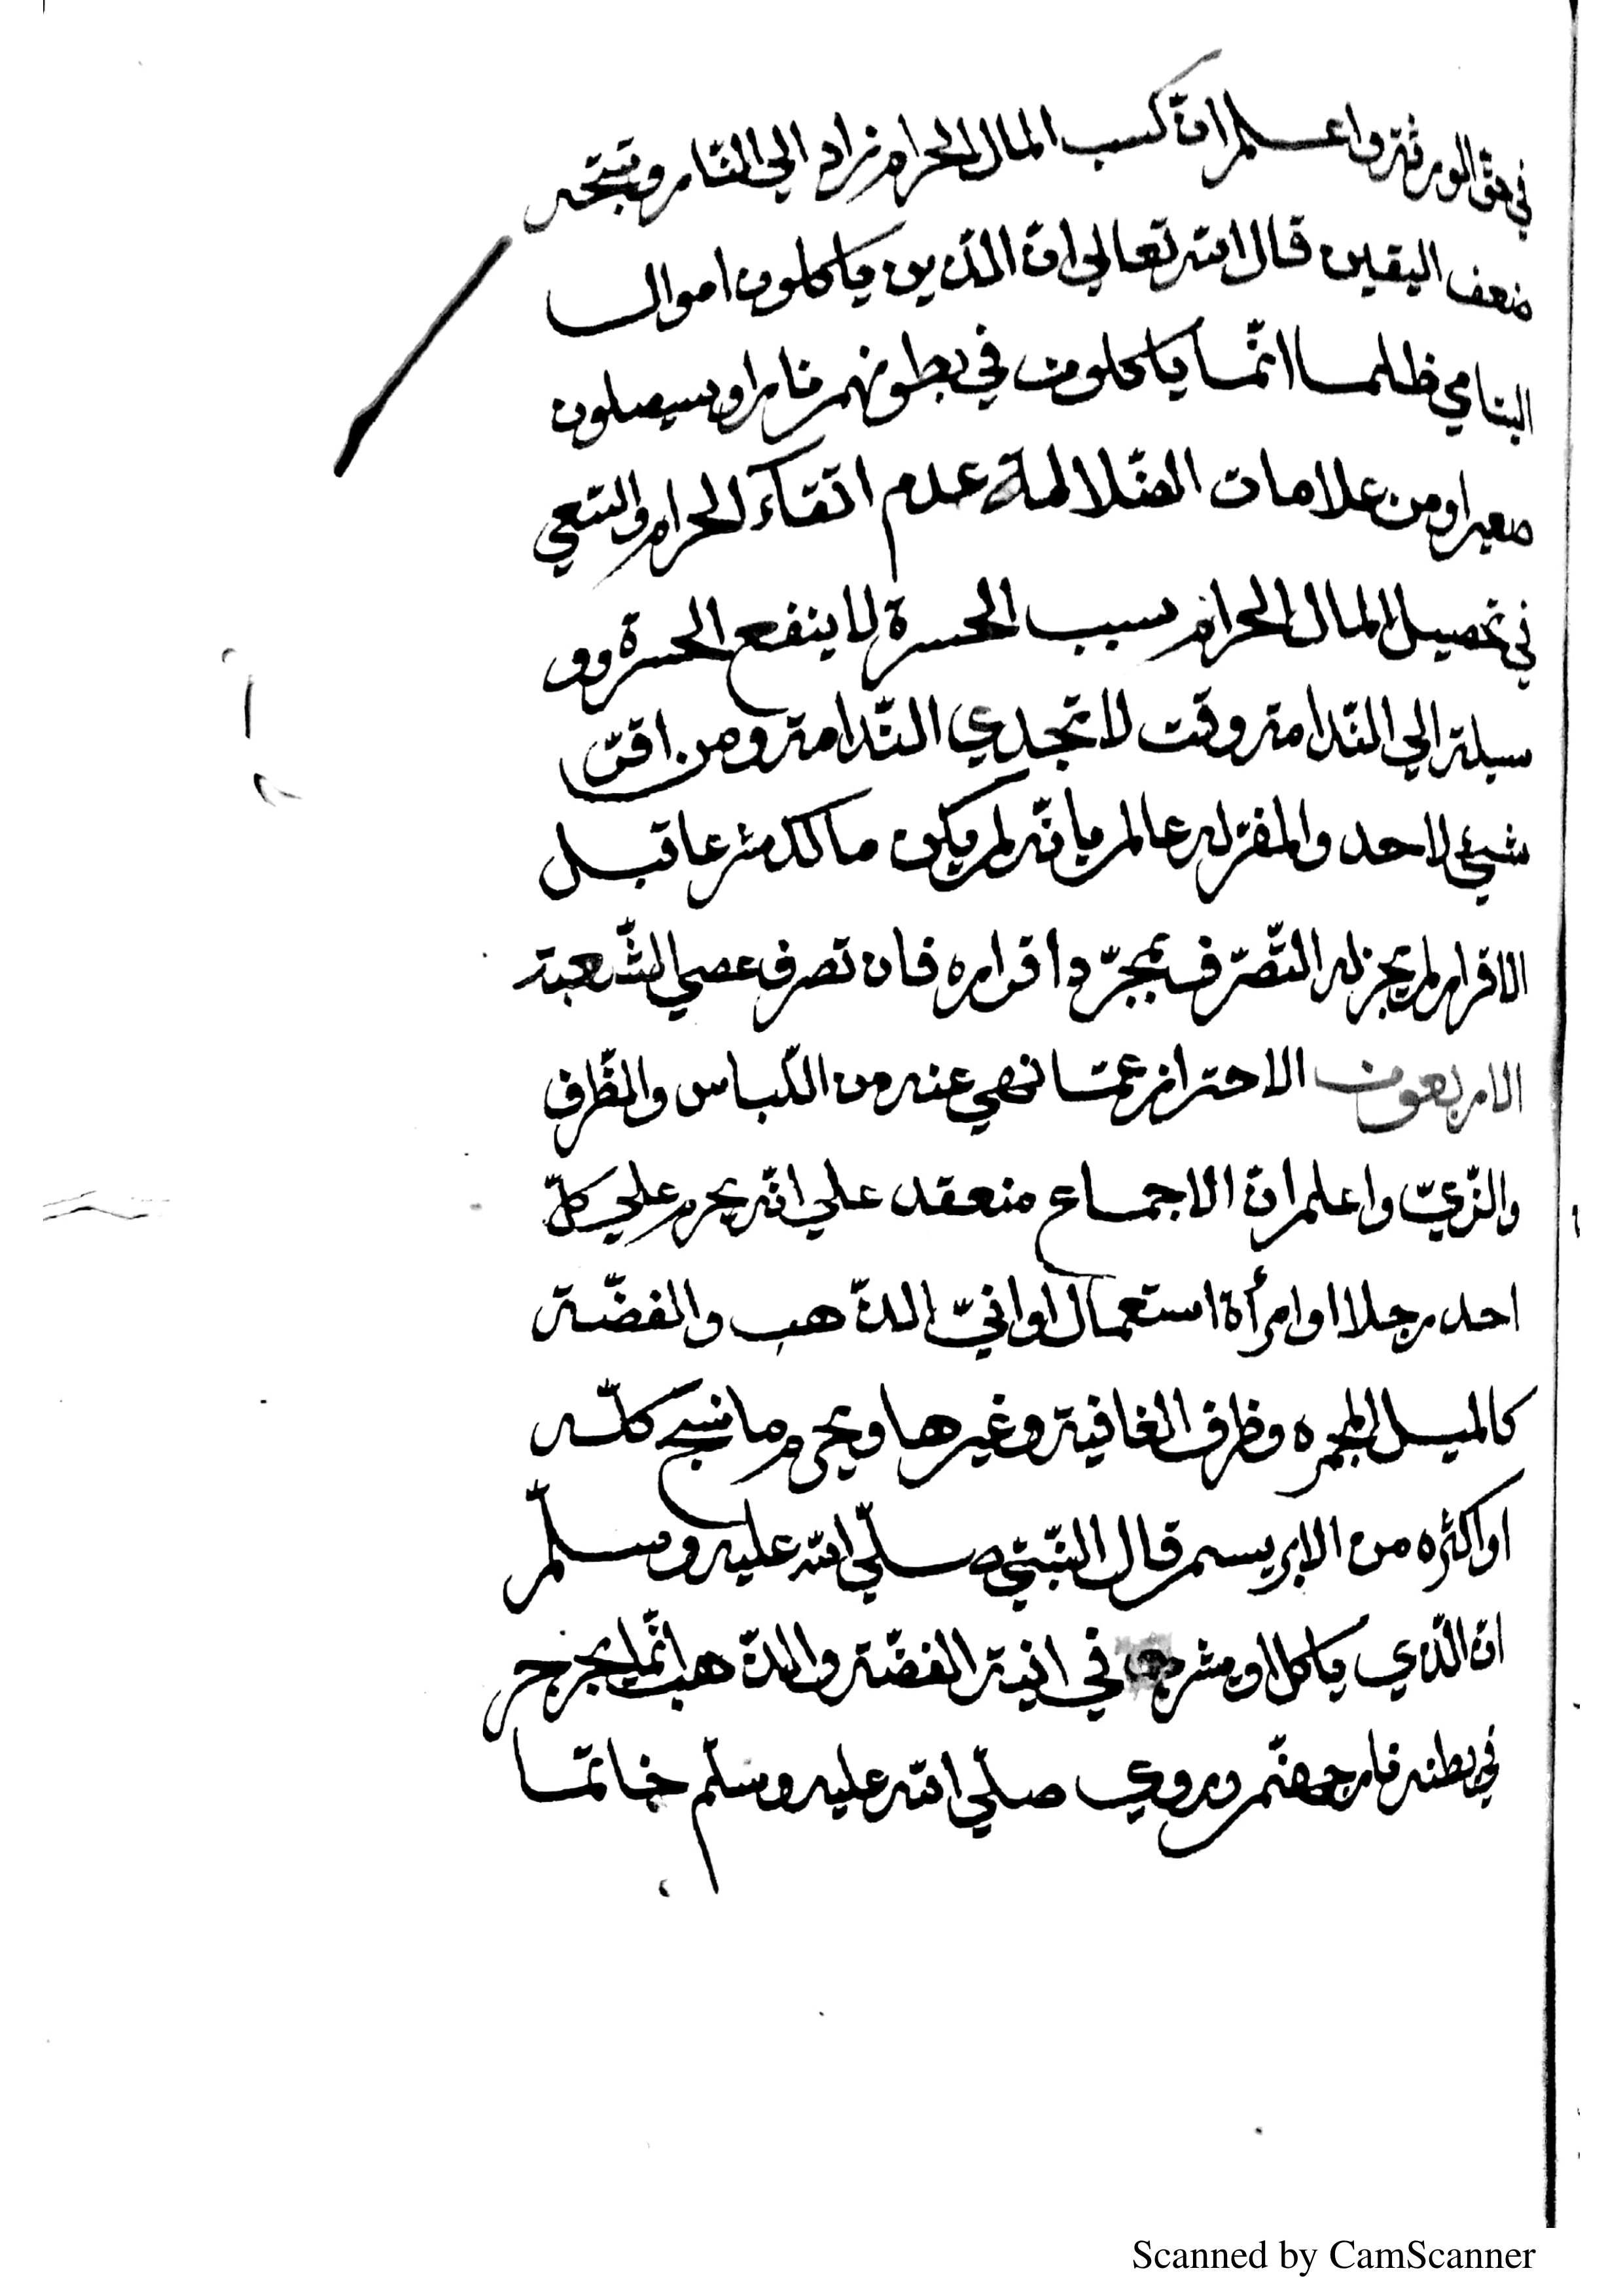 في حق الورثة واعلم انّ كسب المال الحرام زاد الي النّار ونتيجة
ضعف اليقين قال الله تعالي انّ الذين ياكلون اموال
اليتامي ظلما انّما ياكلون في بطونهم نارا وسيصلون
سعيرا ومن علامات الضّلالة عدم اتّقاء الحرام والسّعي
في تحصيل المال الحرام سبب الحسرة لا ينفع الحسرة وو
سيلة الي النّدامة وقت لا تجدي النّدامة ومن اقرّ
شيئ لاحد والمقرّ له عالم بانّه لم يكن مالكه شرعا قبل
الاقرار لم يجز له التّصرّف بمجرّد اقراره فان تصرف عصي الشّعبة
الاربعون الاحتراز عمّا نهي عنه من اللّباس والظّرف
والزّيّ واعلم انّ الاجماع منعقد علي انّه يحرم علي كلّ
احد رجلا او امرأة استعمال اوانيّ الذّهب والفضّة
كالميل والمجمره وظرف الغالية وغيرها ويحرم ما نسج كلّه
او اكثره من الابريسم قال النّبيّ صلّي الله عليه وسلّم
انّ الّذي ياكل او يشرب في انية الفضّة والذّهب انّما يجرجر
في بطنه نار جهنّم وروي صلّي الله عليه وسلّم خاتما
Scanned by CamScanner